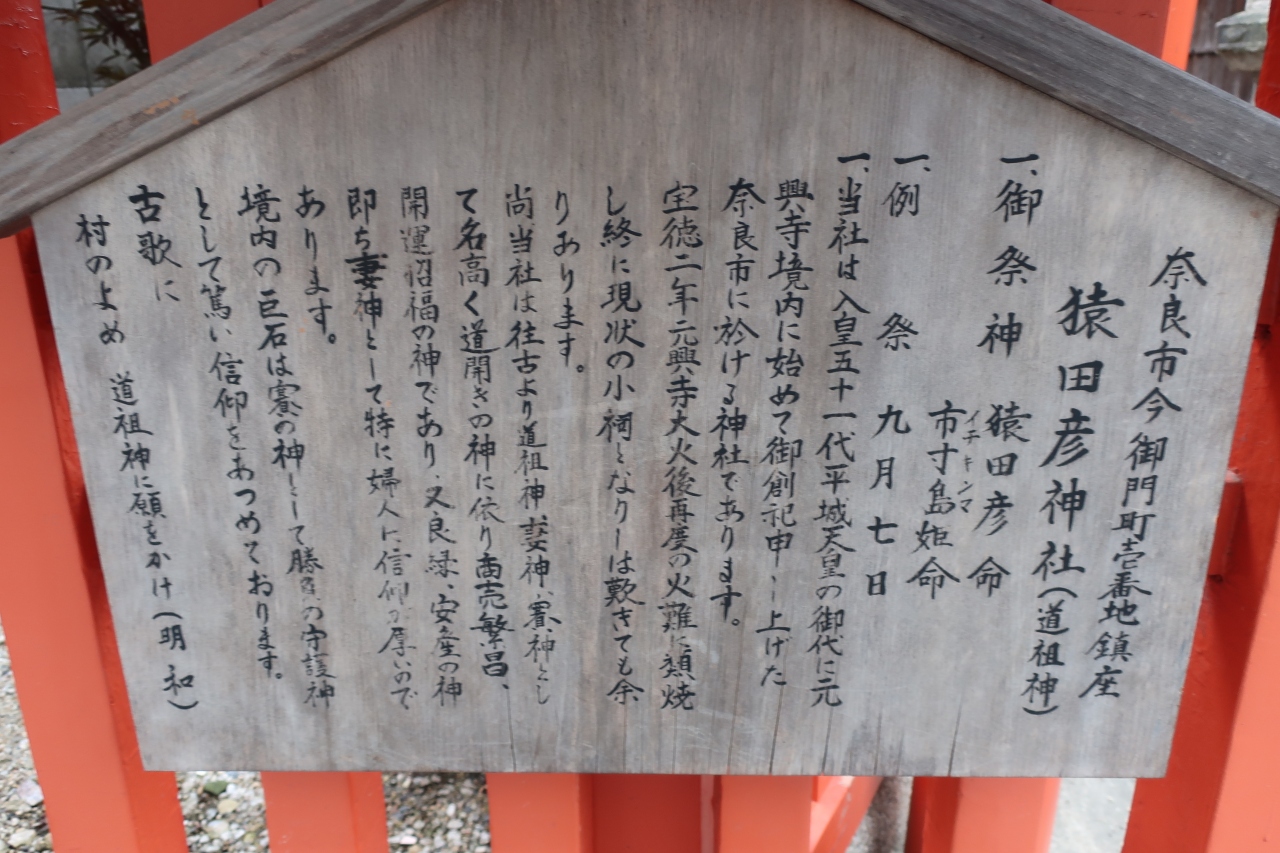 奈良市今御門町壱番地鎮座
猿田彦神社(道祖神)
一、御祭神 猿田彦命
イチキシマ
市寸島姫命
一、例祭 九月七日
一、当社は入皇五十一代平城天皇の御代に元
興寺境内に始めて御創祀申し上げた
奈良市に於ける神社であります。
宝徳二年元興寺大火後再度の火難に類焼
し終に現状の小祠となりしは歎きても余
りあります。
尚当社は往古より道祖神、妻神、賽神とし
て名高く道開きの神に依り商売繁昌、
開運招福の神であり又良縁、安産の神
即ち妻神として特に婦人に信仰が厚いので
あります。
境内の巨石は賽の神として勝負の守護神
として篤い信仰をあつめております。
古歌に
村のよめ 道祖神に願をかけ(明和)